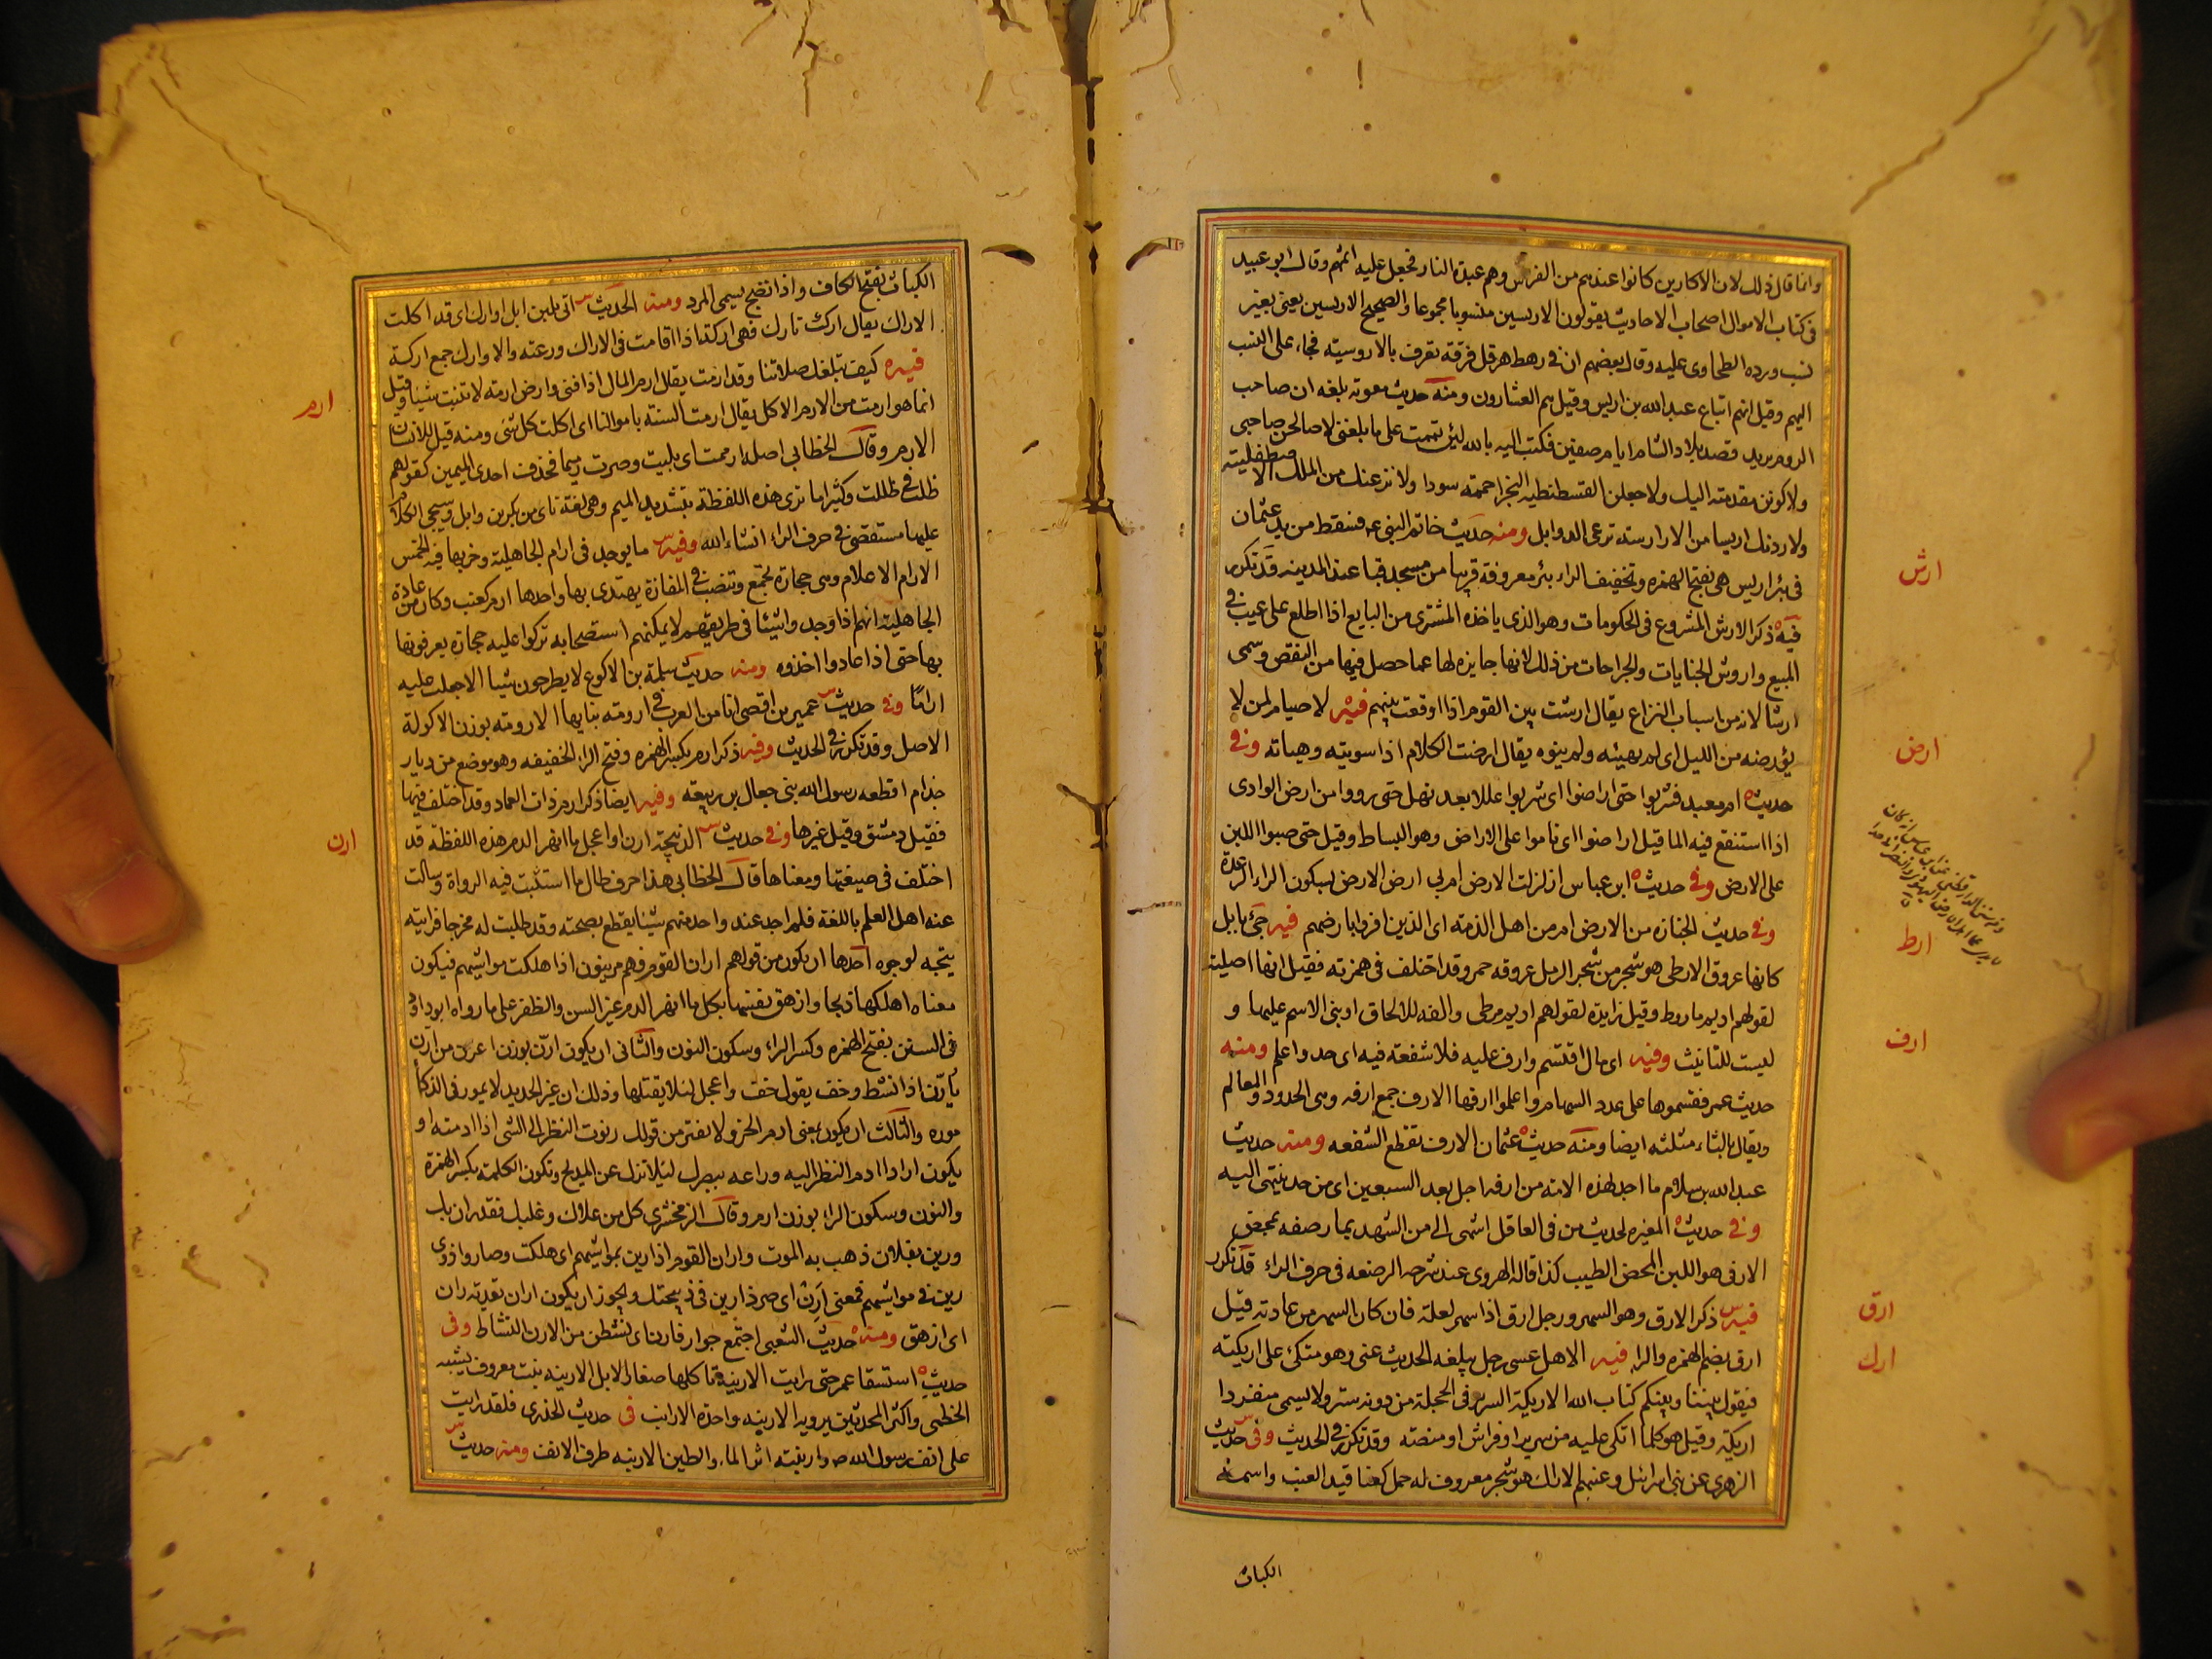 وانما قال ذلك لان الاكارين كانوا عندهم من الفرس وهم عبدة النار فجعل عليه اثمهم وقال ابو عبيد
فى كتاب الاموال اصحاب الاحاديث يقولون الاريسين منسوبا مجموعا والصحيح الاريسين يعنى بغير
نسب ورده الطحاوى عليه وقال بعضهم ان فى رهط هرقل فرقة تعرف بالاروسية فجاء على النسب
اليهم وقيل انهم اتباع عبد الله بن اريس وقيل هم العشارون ومنه حديث معوية بلغه ان صاحب
الروم يريد قصد بلاد الشام ايام صفين فكتب اليه بالله لئن تممت على ما بلغنى لاصالحن صاحبى
ولاكونن مقدمته اليك ولاجعلن القسطنطنيه البخرا حممة سودا ولانزعنك من الملك نزع الاصطفلينة
ولاردنك اريسا من الارارسة ترعى الدوابل ومنه حديث خاتم النبى ع فسقط من يد عثمان
فى بئر اريس هى بفتح الهمزه وتخفيف الراء بئر معروفة قريبا من مسجد قبا عند المدينه قد تكرر
فيه ذكر الارش المشروع فى الحكومات وهو الذى ياخذه المشترى من البايع اذا اطلع على عيب فى
المبيع واروش الجنايات والجراحات من ذلك لانها جابره لها عما حصل فيها من النقص وسمى
ارشا لانه من اسباب النزاع يقال ارشت بين القوم اذا اوقعت بينهم فيه لا صيام لمن لا
يؤرضه من الليل اى لم يهيئه ولم ينوه يقال ارضت الكلام اذا سويته وهياته وفى
حديث ام معبد فشربوا حتى اراضوا اى شربوا عللا بعد نهل حتى رووا من ارض الوادى
اذا استنقع فيه الما قيل اراضوا اى ناموا على الاراض وهو البساط وقيل حتى صبوا اللبن
على الارض وفى حديث ابن عباس ازلزلت الارض ام بى ارض الارض بسكون الراء الرعدة
وفى حديث الجنازه من الارض ام من اهل الذمة اى الذين اقروا بارضهم فيه جئ بابل
كانها عروق الارطى هو شجر من شجر الرمل عروقه حمر وقد اختلف فى همزته فقيل انها اصلية
لقولهم اديم ماروط وقيل زايدة لقولهم اديم مرطى والفه للالحاق او بنى الاسم عليها و
ليست للتانيث وفيه اى مال اقتسم وارف عليه فلا شفعة فيه اى حد واعلم ومنه
حديث عمر فقسموها على عدد السهام واعلموا ارفها الارف جمع ارفه وهى الحدود والمعالم
ويقال بالثاء مثلثه ايضا ومنه حديث عثمان الارف تقطع الشفعه ومنه حديث
عبد الله بن سلام ما اجد لهذه الامة من ارفة اجل بعد السبعين اى من حد ينتهى اليه
وفى حديث المغيره لحديث من فى العاقل اشهى الى من الشهد بما رصفه بمحض
الارفى هو اللبن المحض الطيب كذا قاله الهروى عند شرحه الرصفه فى حرف الراء قد تكرر
فيه ذكر الارق وهو السهر ورجل ارق اذا سهر لعلة فان كان السهر من عادته قيل
ارق بضم الهمزه والرا فيه الا هل عسى رجل يبلغه الحديث عنى وهو متكئ على اريكته
فيقول بيننا وبينكم كتاب الله الاريكة السرير فى الحجلة من دونه ستر ولا يسمى منفردا
اريكة وقيل هو كلما اتكى عليه من سرير او فراش او منصته وقد تكرر فى الحديث وفى حديث
الزهرى عن بنى اسرائيل وعنبهم الاراك هو شجر معروف له حمل كعناقيد العنب واسمه
الكباث
ارش
ارض
ارط
ارف
ارق
ارك
الكباث بفتح الكاف واذا نضج يسمى المرد ومنه الحديث اتى بلبن ابل اوارك اى قد اكلت
الاراك يقال اركت تارك فهى اركة اذا اقامت فى الاراك ورعته والاوارك جمع اركة
فيه كيف تبلغك صلاتنا وقد ارمت يقال ارم المال اذا فنى وارض ارمه لا تنبت شيئا وقيل
انما هو ارمت من الارم الاكل يقال ارمت السنة باموالنا اى اكلت كل شئ ومنه قيل للاسنان
الارم وقال الخطابى اصله ارممت اى بليت وصرت رميما فحذفت احدى الميمين كقولهم
ظلت فى ظللت وكثيرا ما تروى هذه اللفظة بتشديد الميم وهى لغة ناس من بكر بن وايل وسيجى الكلام
عليها مستقصى فى حرف الراء انشاء الله وفيه ما يوجد فى ارام الجاهلية وخربها فيه الخمس
الارام الاعلام وهى حجارة تجتمع وتنصب فى المفازة يهتدى بها واحدها ارم كعنب وكان من عادة
الجاهلية انهم اذا وجدوا شيئا فى طريقهم لا يمكنهم استصحابه تركوا عليه حجارة يعرفونها
بها حتى اذا عادوا اخذوه ومنه حديث سلمة بن الاكوع لا يطرحون شيئا الا جعلت عليه
اراما وفى حديث عمير بن اقصى انا من العرب فى ارومة بنايها الارومة بوزن الاكولة
الاصل وقد تكرر فى الحديث وفيه ذكر ارم بكسر الهمزه وفتح الراء الخفيفه وهو موضع من ديار
جذام اقطعه رسول الله بنى جعال بن ربيعة وفيه ايضا ذكر ارم ذات العماد وقد اختلف فيها
فقيل دمشق وقيل غيرها وفى حديث الذبيحة ارن او اعجل ما انهر الدم هذه اللفظة قد
اختلف فى صيغتها ومعناها قال الخطابى هذا حرف طال ما استثبت فيه الرواة وسالت
عنه اهل العلم باللغة فلم اجد عند واحد منهم شيئا يقطع بصحته وقد طلبت له مخرجا فرايته
يتجه لوجوه احدها ان يكون من قولهم اران القوم فهم مرينون اذا هلكت مواشيهم فيكون
معناه اهلكها ذبحا وازهق نفسها بكل ما انهر الدم غير السن والظفر على ما رواه ابو داود
فى السنن بفتح الهمزه وكسر الراء وسكون النون والثانى ان يكون ارن بوزن اعرن من ارن
يارن اذا نشط وخف يقول خف واعجل لئلا يقتلها وذلك ان غير الحديد لا يمور فى الذكاة
موره والثالث ان يكون بمعنى ادم الحز ولا تفتر من قولك رنوت النظر الى الشى اذا ادمته او
يكون اراد ادم النظر اليه وراعه ببصرك لئلا تزل عن المذبح وتكون الكلمة بكسر الهمزة
والنون وسكون الراء بوزن ارم وقال الزمخشرى كل من علاك وغلبك فقد ران بك
ورين بفلان ذهب به الموت واران القوم اذا رين بمواشيهم اى هلكت وصاروا ذوى
رين فى مواشيهم فمعنى ارن اى صر ذا رين فى ذبيحتك ويجوز ان يكون اران تعدية ران
اى ازهق ومنه حديث الشعبى اجتمع جوار فارن اى نشطن من الارن النشاط وفى
حديث استسقا عمر حتى رايت الارينة تاكلها صغار الابل الارينة نبت معروف يشبه
الخطمى واكثر المحدثين يرويه الارينه واحدة الارانب فى حديث الخدرى فلقد رايت
على انف رسول الله ص وارنبته اثر الماء والطين الارنبه طرف الانف ومنه حديث
ارم
ارن